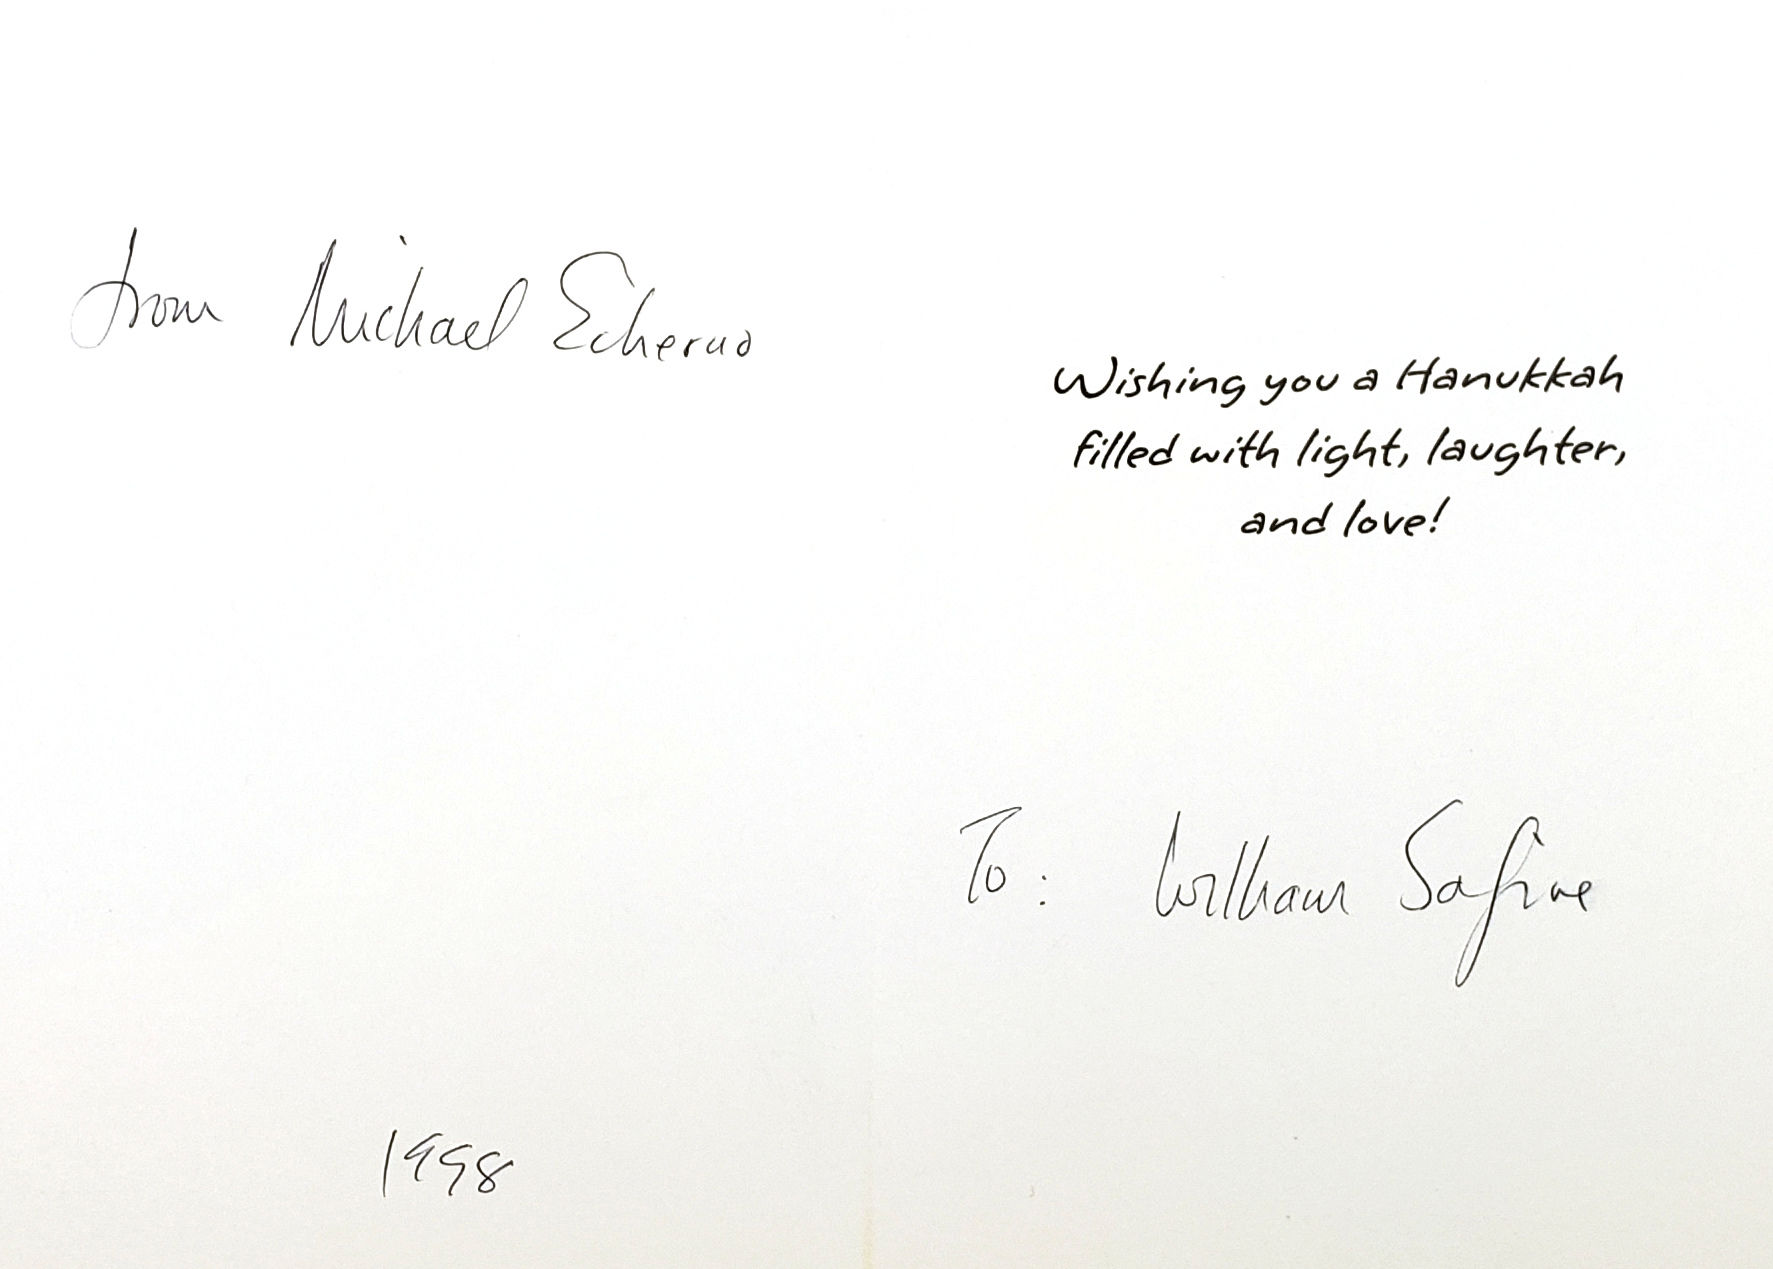 from Michael Echeruo
1998
Wishing you a Hanukkah
filled with light, laughter,
and love!
To: William Safire